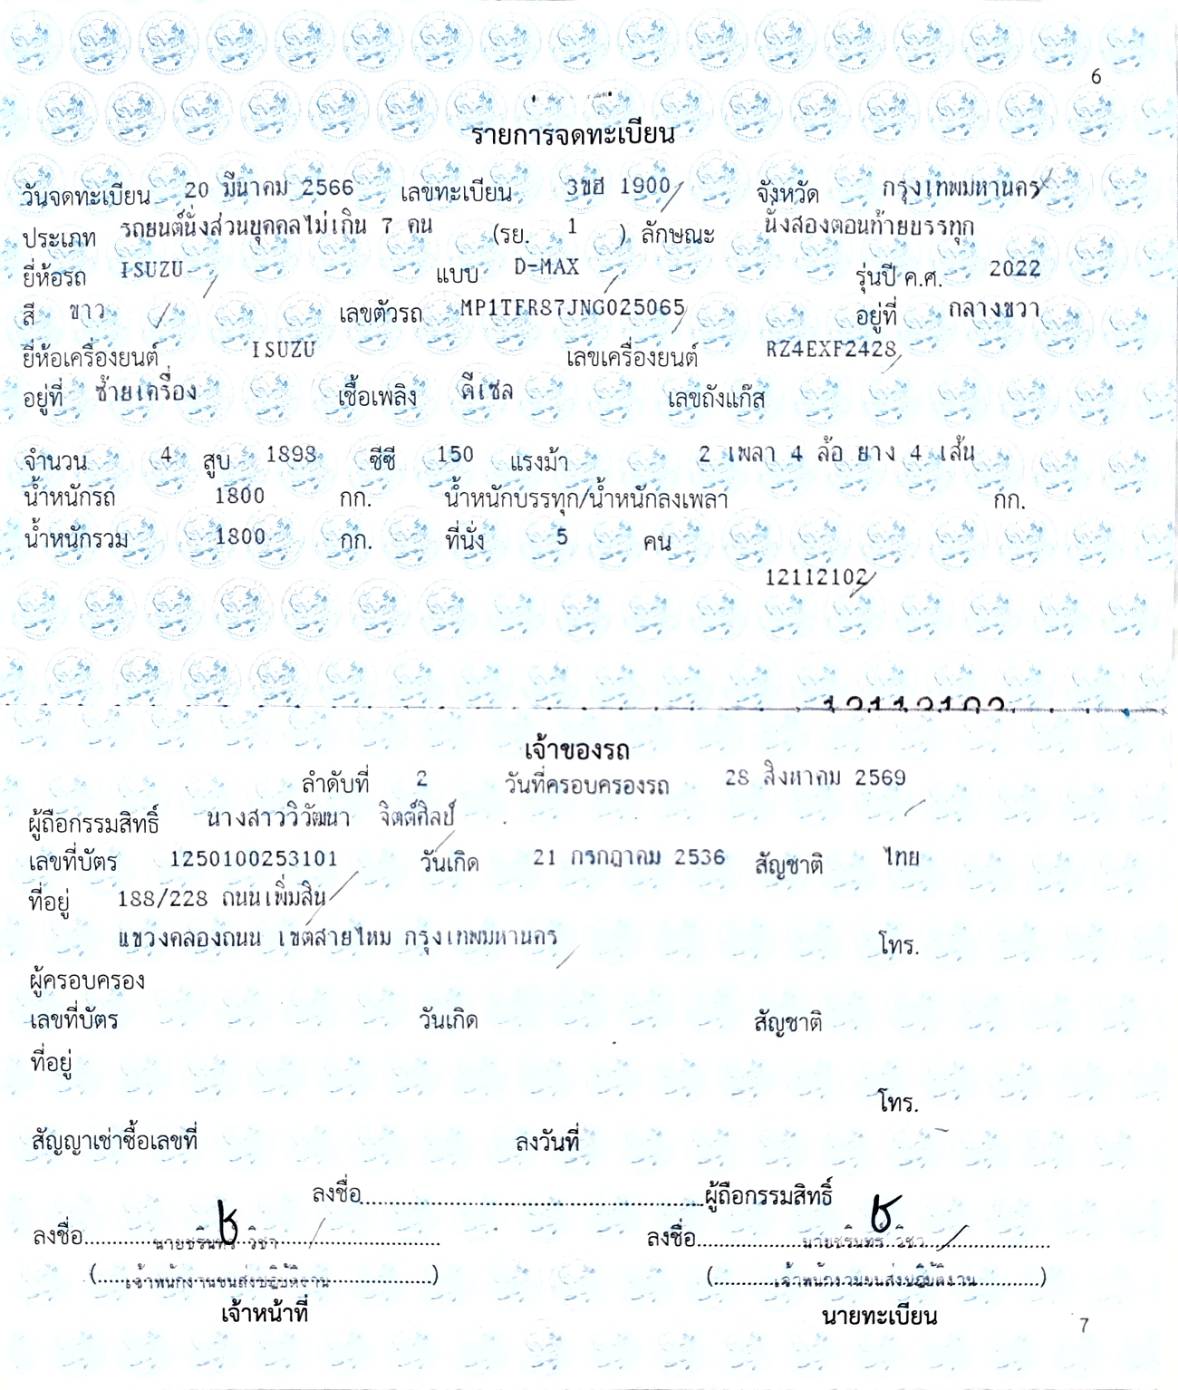 6
รายการจดทะเบียน
วันจดทะเบียน 20 มีนาคม 2566 เลขทะเบียน 3ขฮ 1900 จังหวัด กรุงเทพมหานคร
ประเภท รถยนต์นั่งส่วนบุคคลไม่เกิน 7 คน (รย. 1 ) ลักษณะ นั่งสองตอนท้ายบรรทุก
ยี่ห้อรถ ISUZU แบบ D-MAX รุ่นปี ค.ศ. 2022
สี ขาว เลขตัวรถ MP1TFR87JNG025065 อยู่ที่ กลางขวา
ยี่ห้อเครื่องยนต์ ISUZU เลขเครื่องยนต์ RZ4EXF2428
อยู่ที่ ซ้ายเครื่อง เชื้อเพลิง ดีเซล เลขถังแก๊ส
จำนวน 4 สูบ 1898 ซีซี 150 แรงม้า 2 เพลา 4 ล้อ ยาง 4 เส้น
น้ำหนักรถ 1800 กก. น้ำหนักบรรทุก/น้ำหนักลงเพลา กก.
น้ำหนักรวม 1800 กก. ที่นั่ง 5 คน
12112102
12112102
เจ้าของรถ
ลำดับที่ 2 วันที่ครอบครองรถ 28 สิงหาคม 2569
ผู้ถือกรรมสิทธิ์ นางสาววิวัฒนา จิตต์ศิลป์
เลขที่บัตร 1250100253101 วันเกิด 21 กรกฎาคม 2536 สัญชาติ ไทย
ที่อยู่ 188/228 ถนนเพิ่มสิน
แขวงคลองถนน เขตสายไหม กรุงเทพมหานคร โทร.
ผู้ครอบครอง
เลขที่บัตร วันเกิด สัญชาติ
ที่อยู่
โทร.
สัญญาเช่าซื้อเลขที่ ลงวันที่
ลงชื่อ ผู้ถือกรรมสิทธิ์
ลงชื่อ นายชรินทร วิชา ลงชื่อ นายชรินทร วิชา
(เจ้าพนักงานขนส่งปฏิบัติงาน) (เจ้าพนักงานขนส่งปฏิบัติงาน)
เจ้าหน้าที่ นายทะเบียน
7